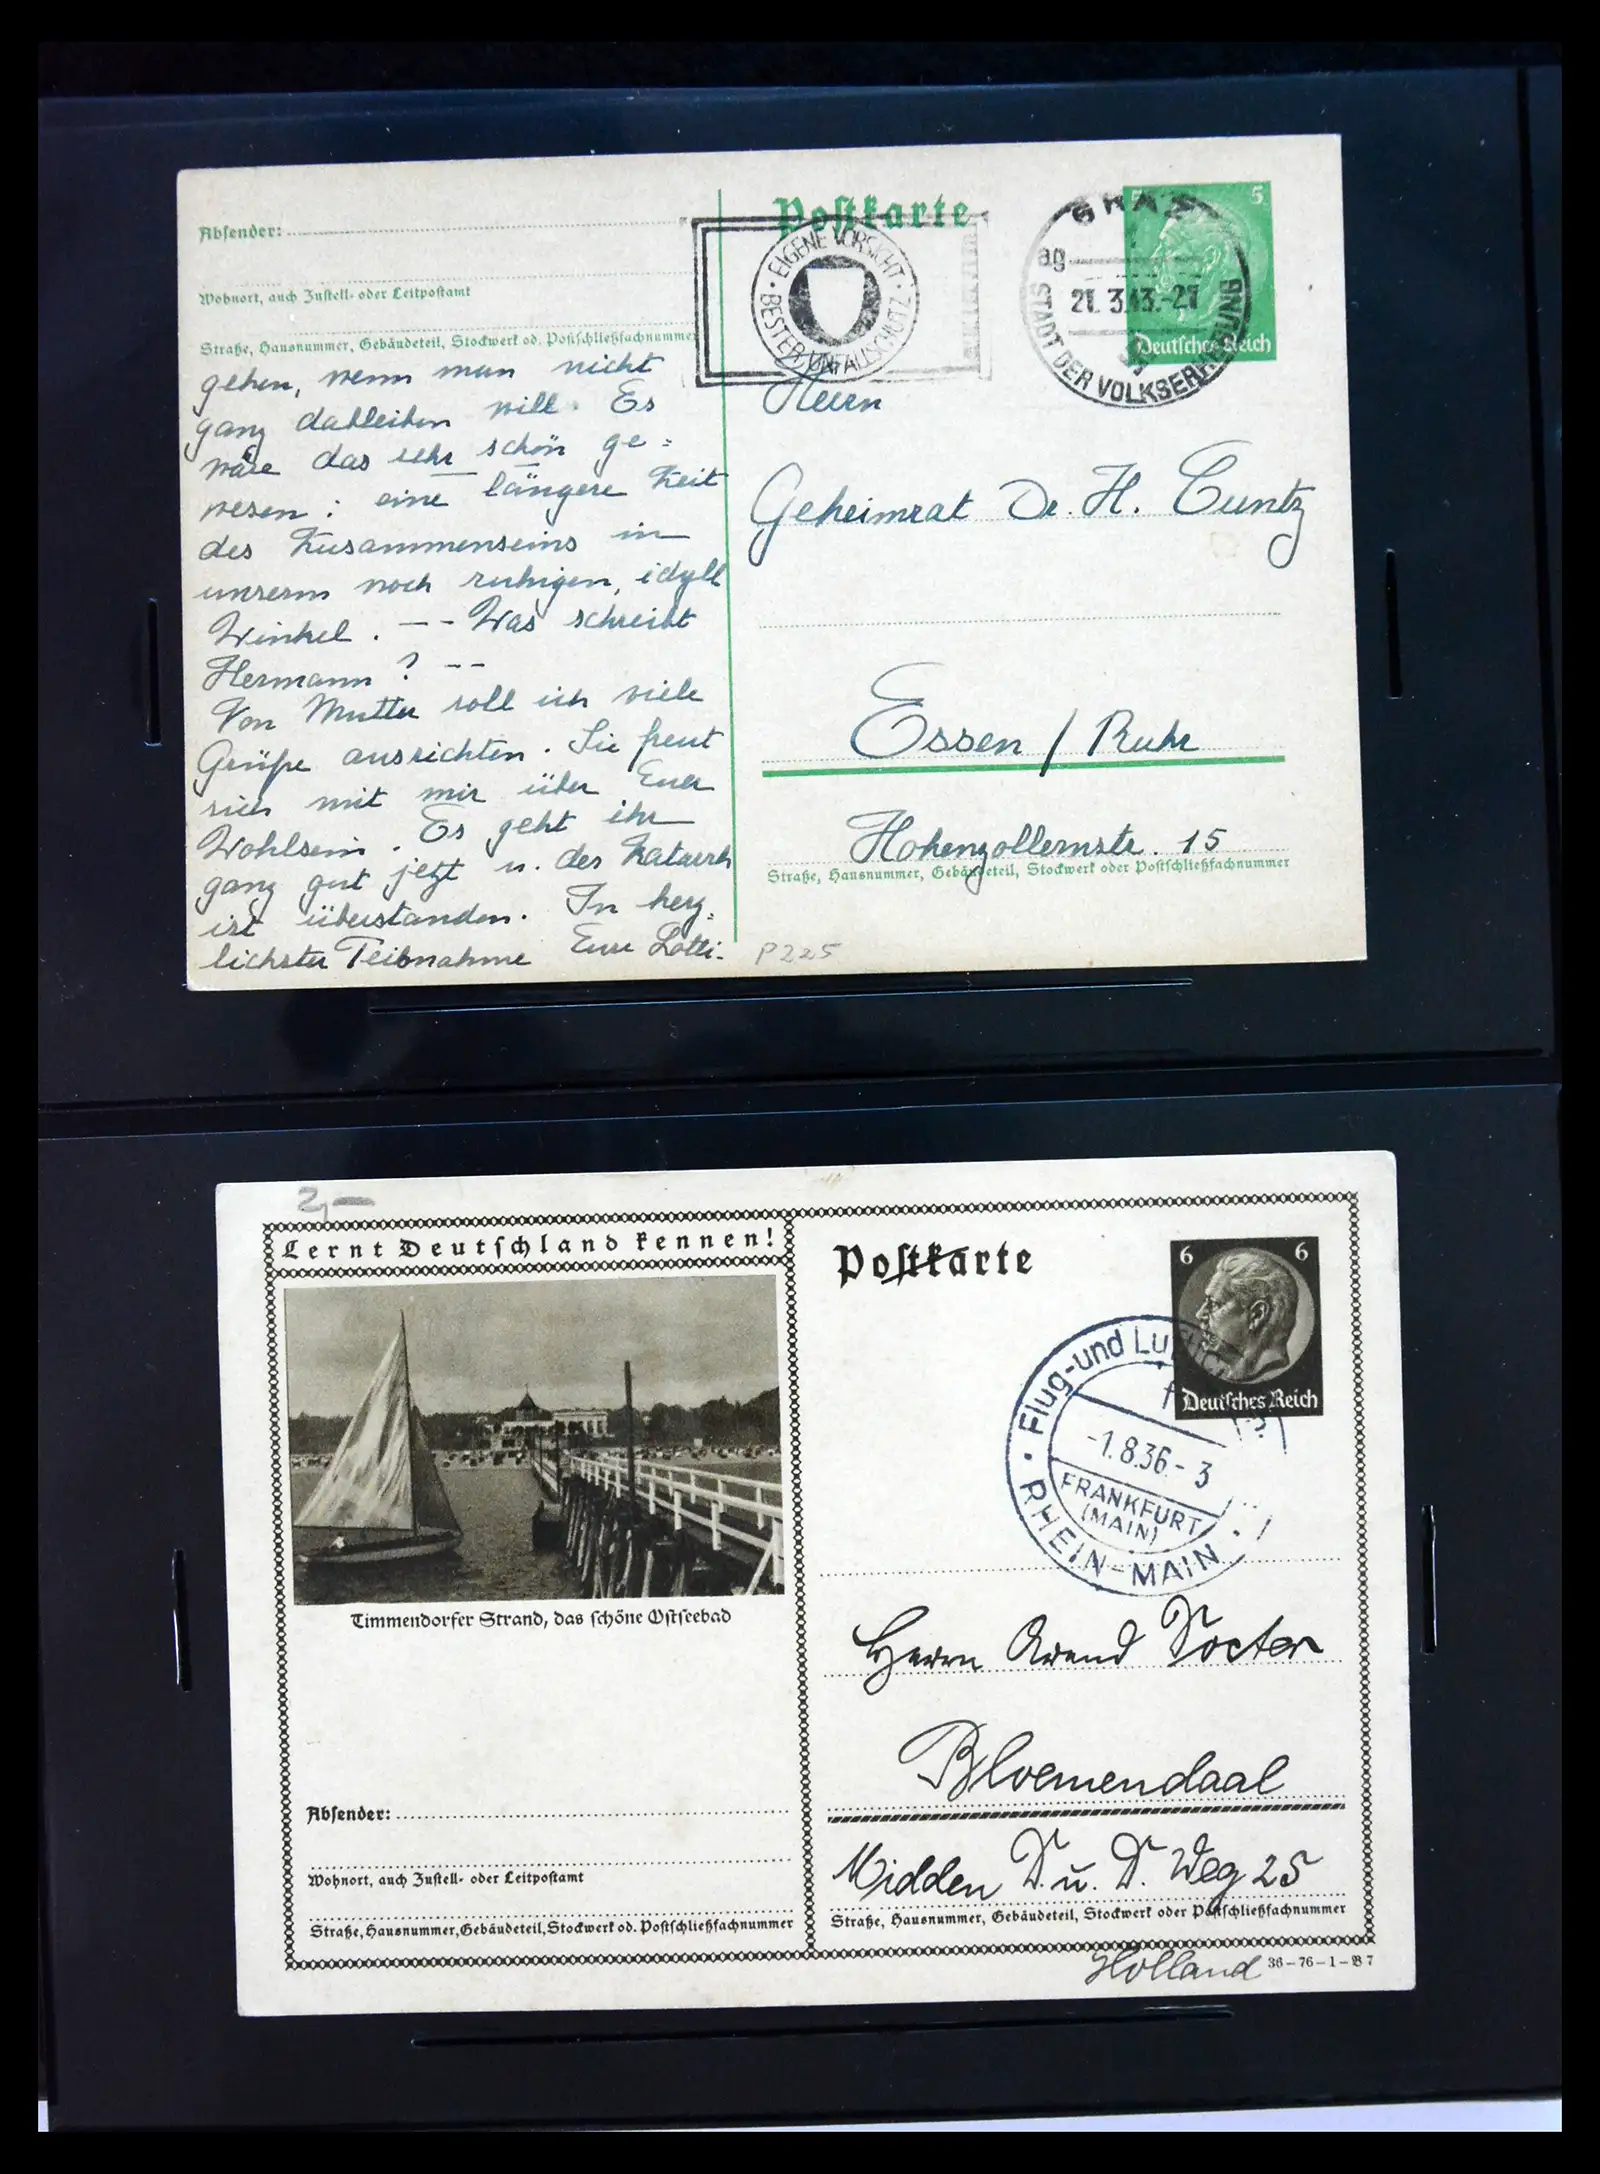 Absender:
Wohnort, auch Zustell- oder Leitpostamt
Straße, Hausnummer, Gebäudeteil, Stockwerk od. Postschließfachnummer
gehen, wenn man nicht
ganz dableiben will. Es
wäre das sehr schön ge=
wesen: eine längere Zeit
des Zusammenseins in
unserm noch ruhigen, idyll
Winkel. -- Was schreibt
Hermann? --
Von Mutter soll ich viele
Grüße ausrichten. Sie freut
sich mit mir über Euer
Wohlsein. Es geht ihr
ganz gut jetzt u. der Katarrh
ist überstanden. In herz=
lichster Teilnahme Eure Lotti.
Postkarte
EIGENE VORSICHT · BESTER UNFALLSCHUTZ
GRAZ
ag
21. 3.43.-21
STADT DER VOLKSERHEBUNG
5 5
Deutsches Reich
Herrn
Geheimrat Dr. H. Cuntz
Essen / Ruhr
Hohenzollernstr. 15
Straße, Hausnummer, Gebäudeteil, Stockwerk oder Postschließfachnummer
P225
2,—
Lernt Deutschland kennen!
Timmendorfer Strand, das schöne Ostseebad
Absender:
Wohnort, auch Zustell- oder Leitpostamt
Straße, Hausnummer, Gebäudeteil, Stockwerk od. Postschließfachnummer
Postkarte
6 6
Deutsches Reich
Flug-und Lu
-1.8.36-3
FRANKFURT
(MAIN)
RHEIN-MAIN
Herrn Arend Docter
Bloemendaal
Midden D. u. D. Weg 25
Straße, Hausnummer, Gebäudeteil, Stockwerk oder Postschließfachnummer
Holland
36-76-1-B7